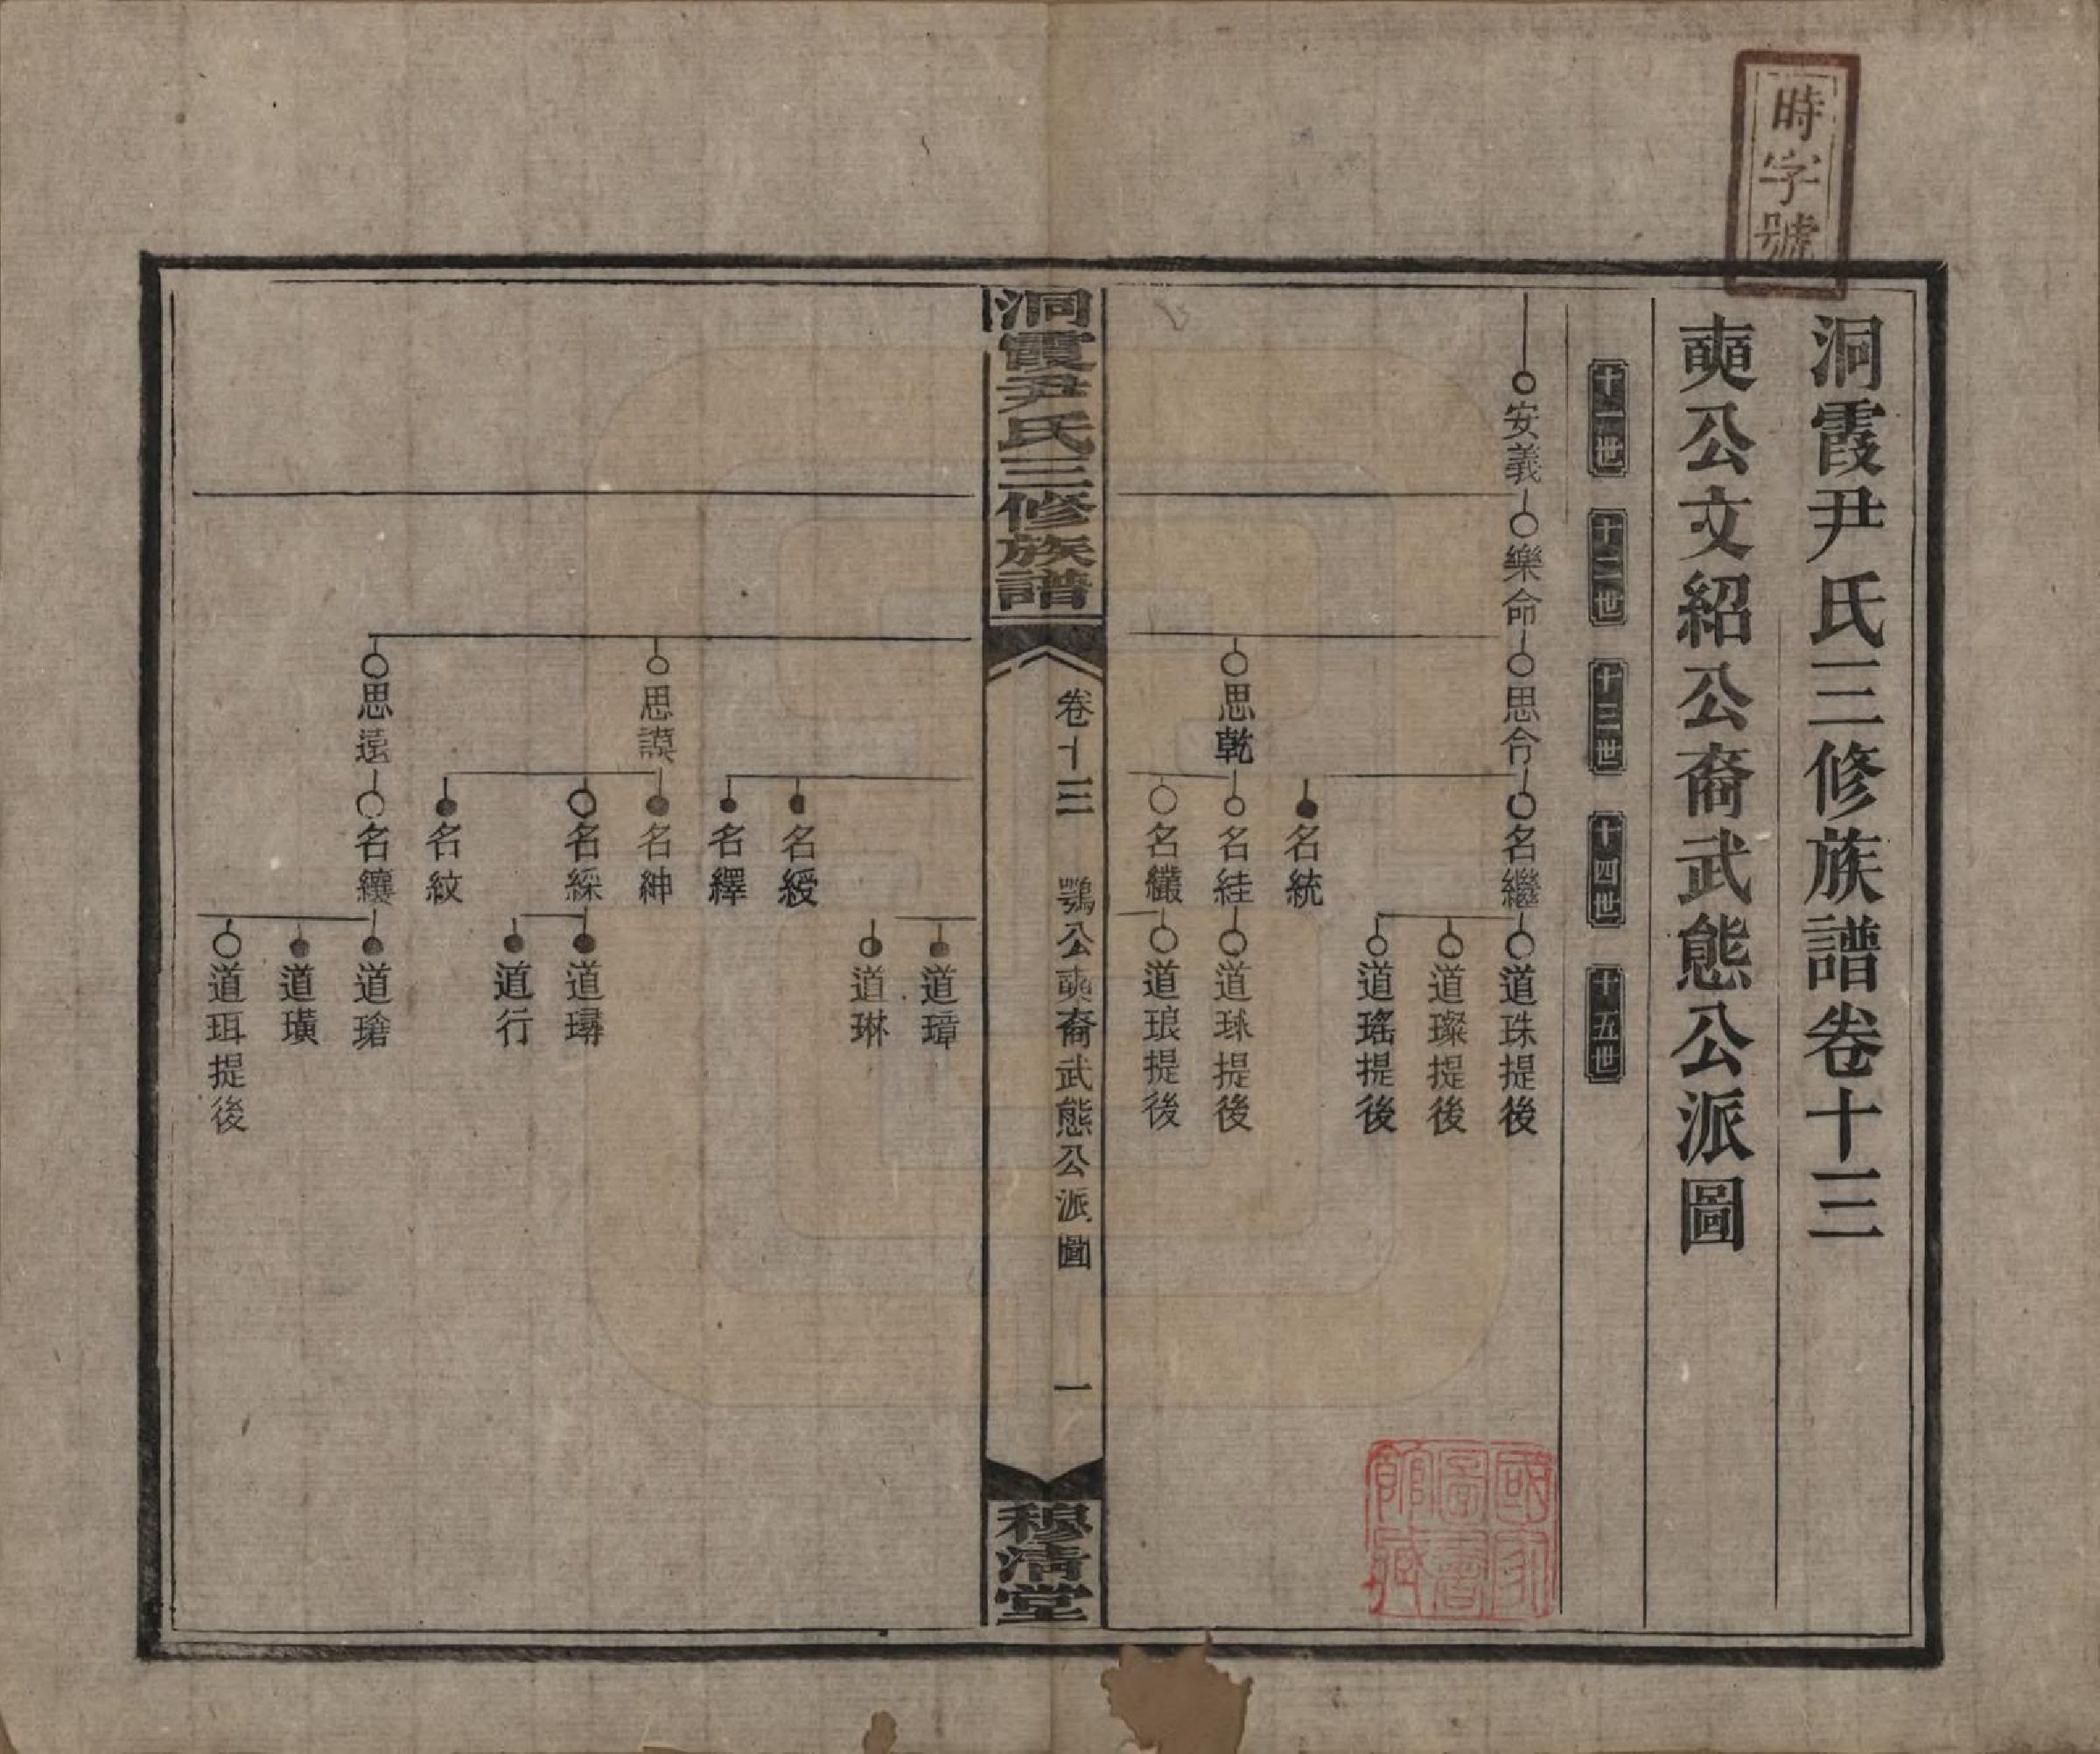 時字號
洞霞尹氏三修族譜卷十三
奭公文紹公裔武態公派圖
十一世 十二世 十三世 十四世 十五世
安義 樂命 思令 名繼 道珠提後
道璨提後
道瑤提後
名統
思乾 名絓 道球提後
名纖 道琅提後
洞霞尹氏三修族譜
卷十三 鶚公奭裔武態公派圖 一
穆清堂
道璋
道琳
名綬
名繹
思謨 名紳
名綵 道璕
道行
名紋
思遠 名纕 道瑲
道璜
道珥提後
國家圖書館藏